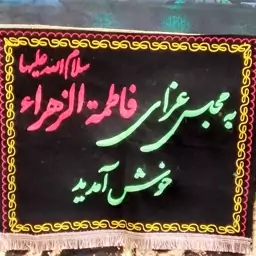 به مجلس عزای فاطمة الزهراء
سلام الله علیها
خوش آمدید